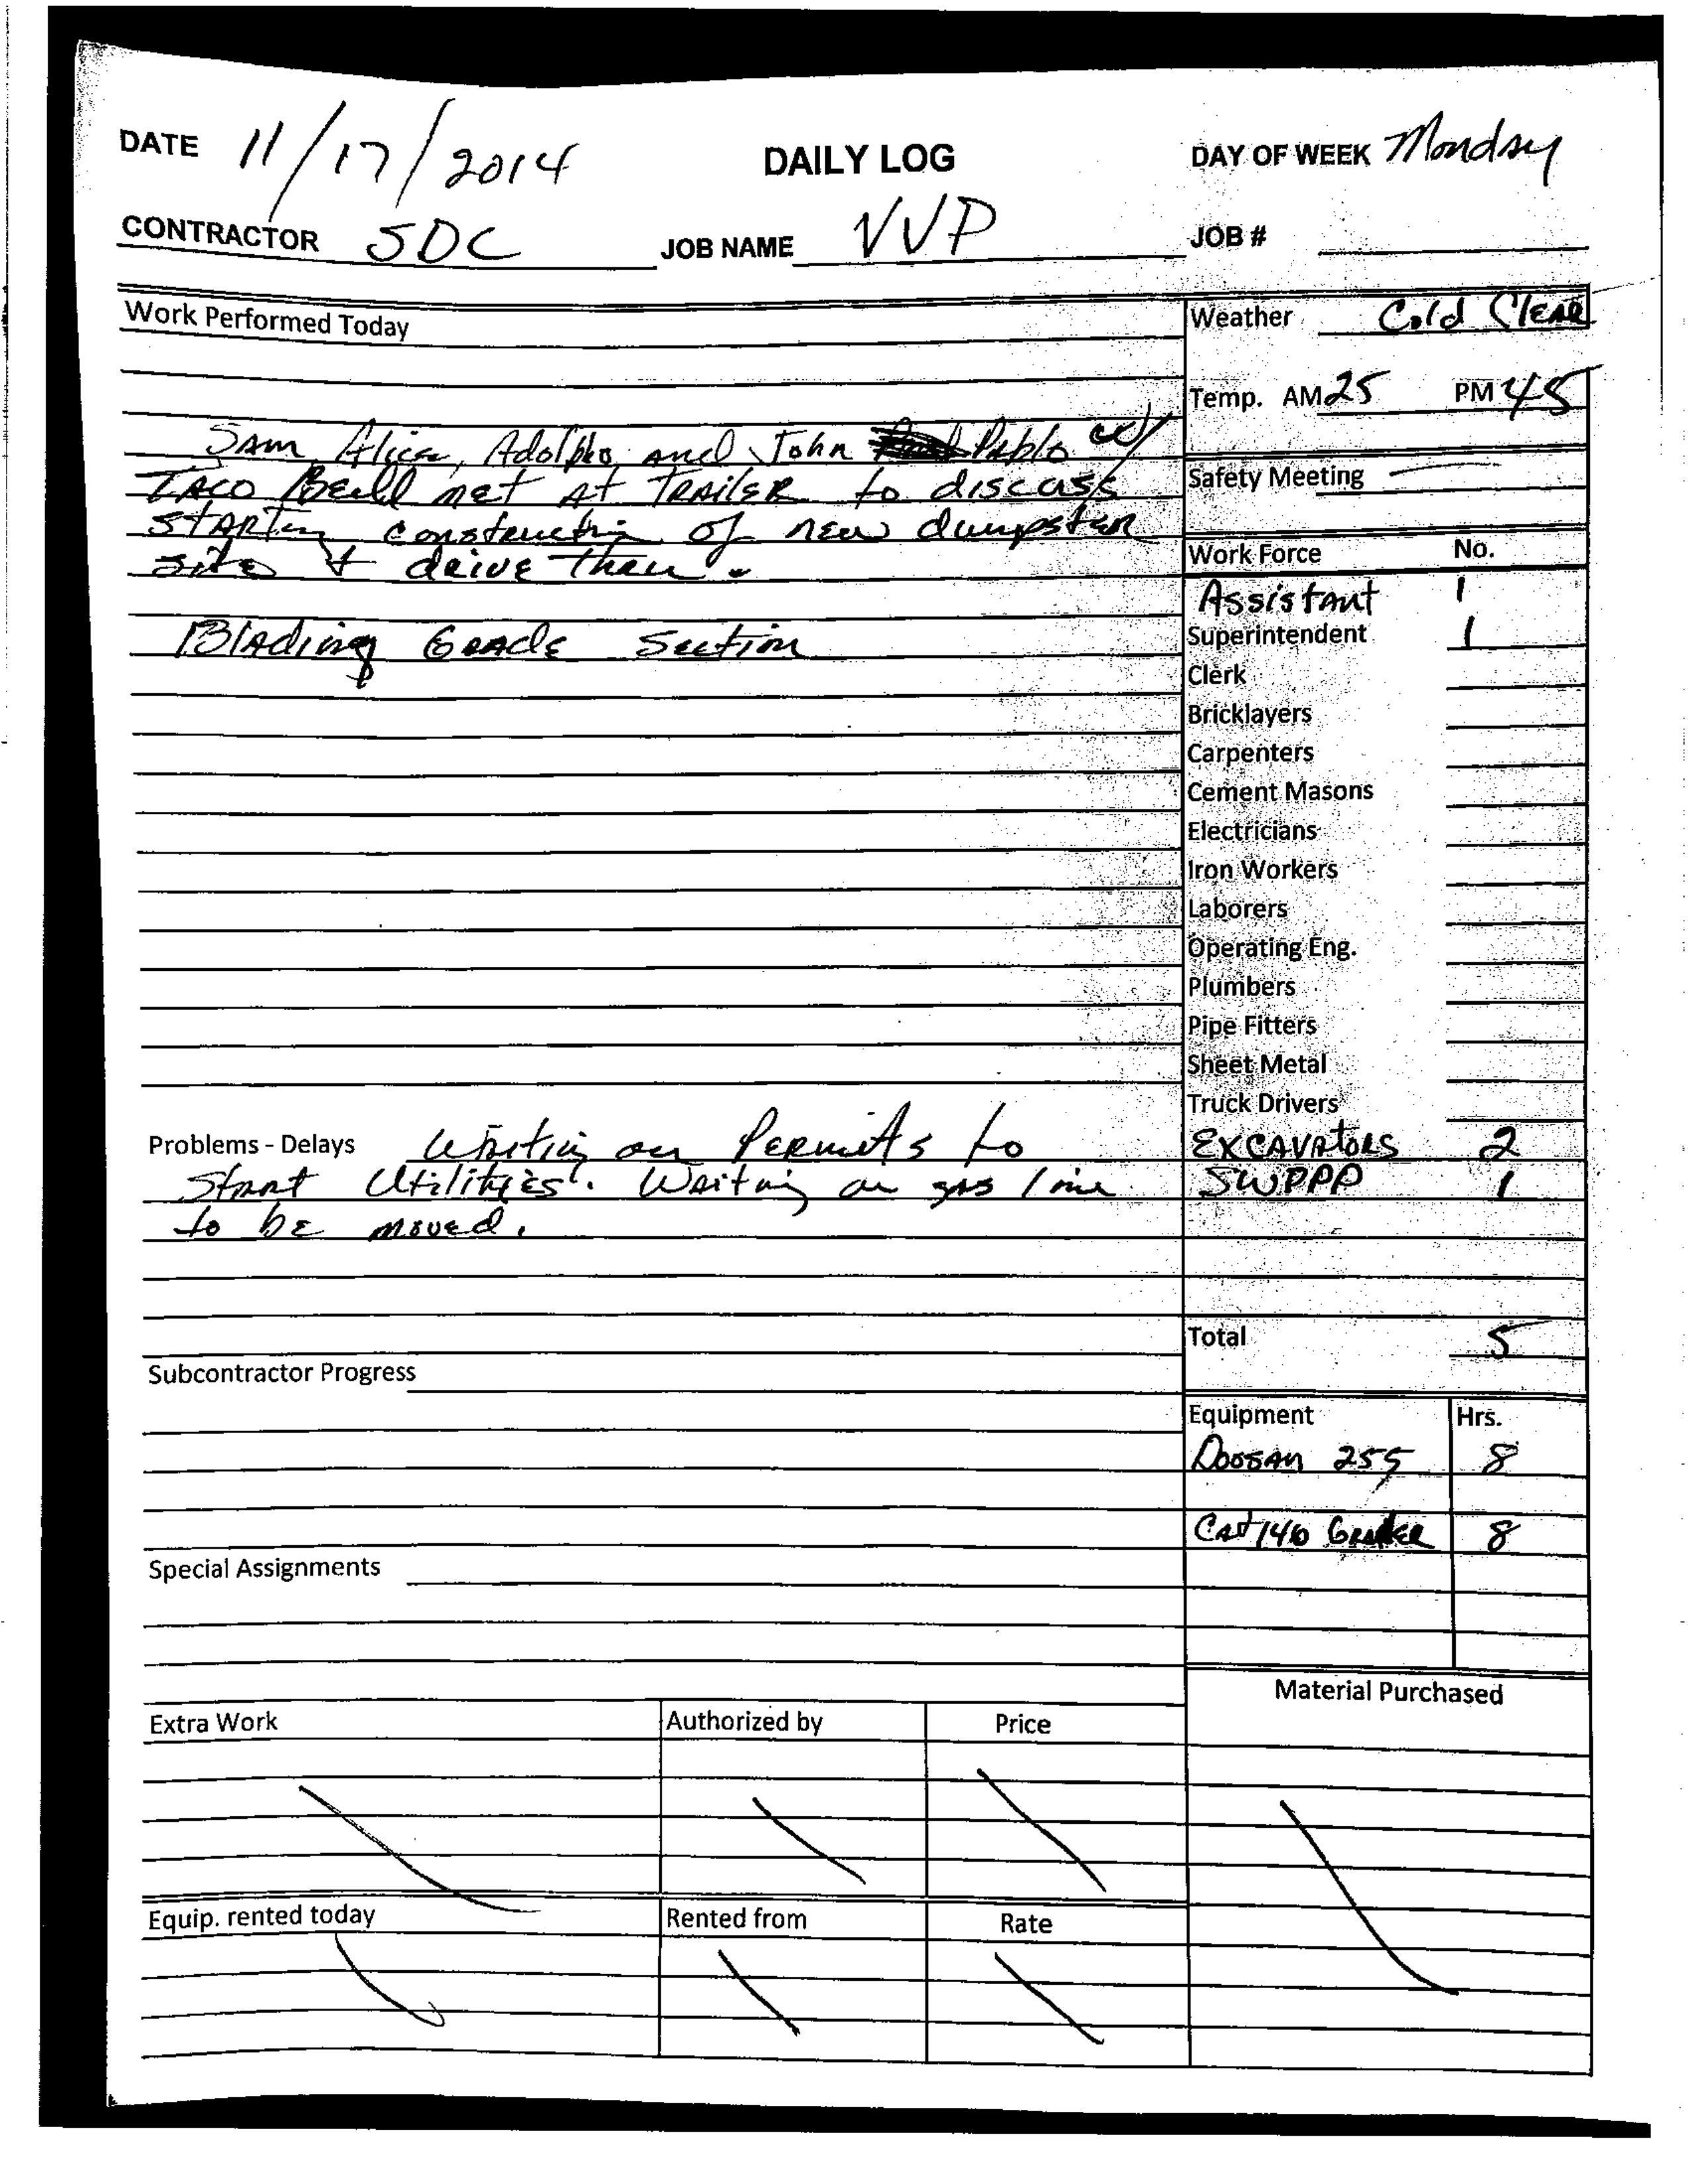 DATE 11/17/2014 DAILY LOG DAY OF WEEK Monday
CONTRACTOR SDC JOB NAME VVP JOB #
Work Performed Today
Weather Cold Clear
Temp. AM 25 PM 45
Sam, Alica, Adolpho and John Pablo w/
Taco Beill met at Trailer to discuss
Starting construction of new dumpster
site & drive thru.
Blading Grade Section
Safety Meeting
Work Force No.
Assistant 1
Superintendent 1
Clerk
Bricklayers
Carpenters
Cement Masons
Electricians
Iron Workers
Laborers
Operating Eng.
Plumbers
Pipe Fitters
Sheet Metal
Truck Drivers
EXCAVATORS 2
SWPPP 1
Total 5
Problems - Delays Waiting on Permits to
Start Utilities. Waiting on gas line
to be moved.
Subcontractor Progress
Special Assignments
Equipment Hrs.
Doosan 255 8
Cat 140 Grader 8
Material Purchased
Extra Work Authorized by Price
Equip. rented today Rented from Rate